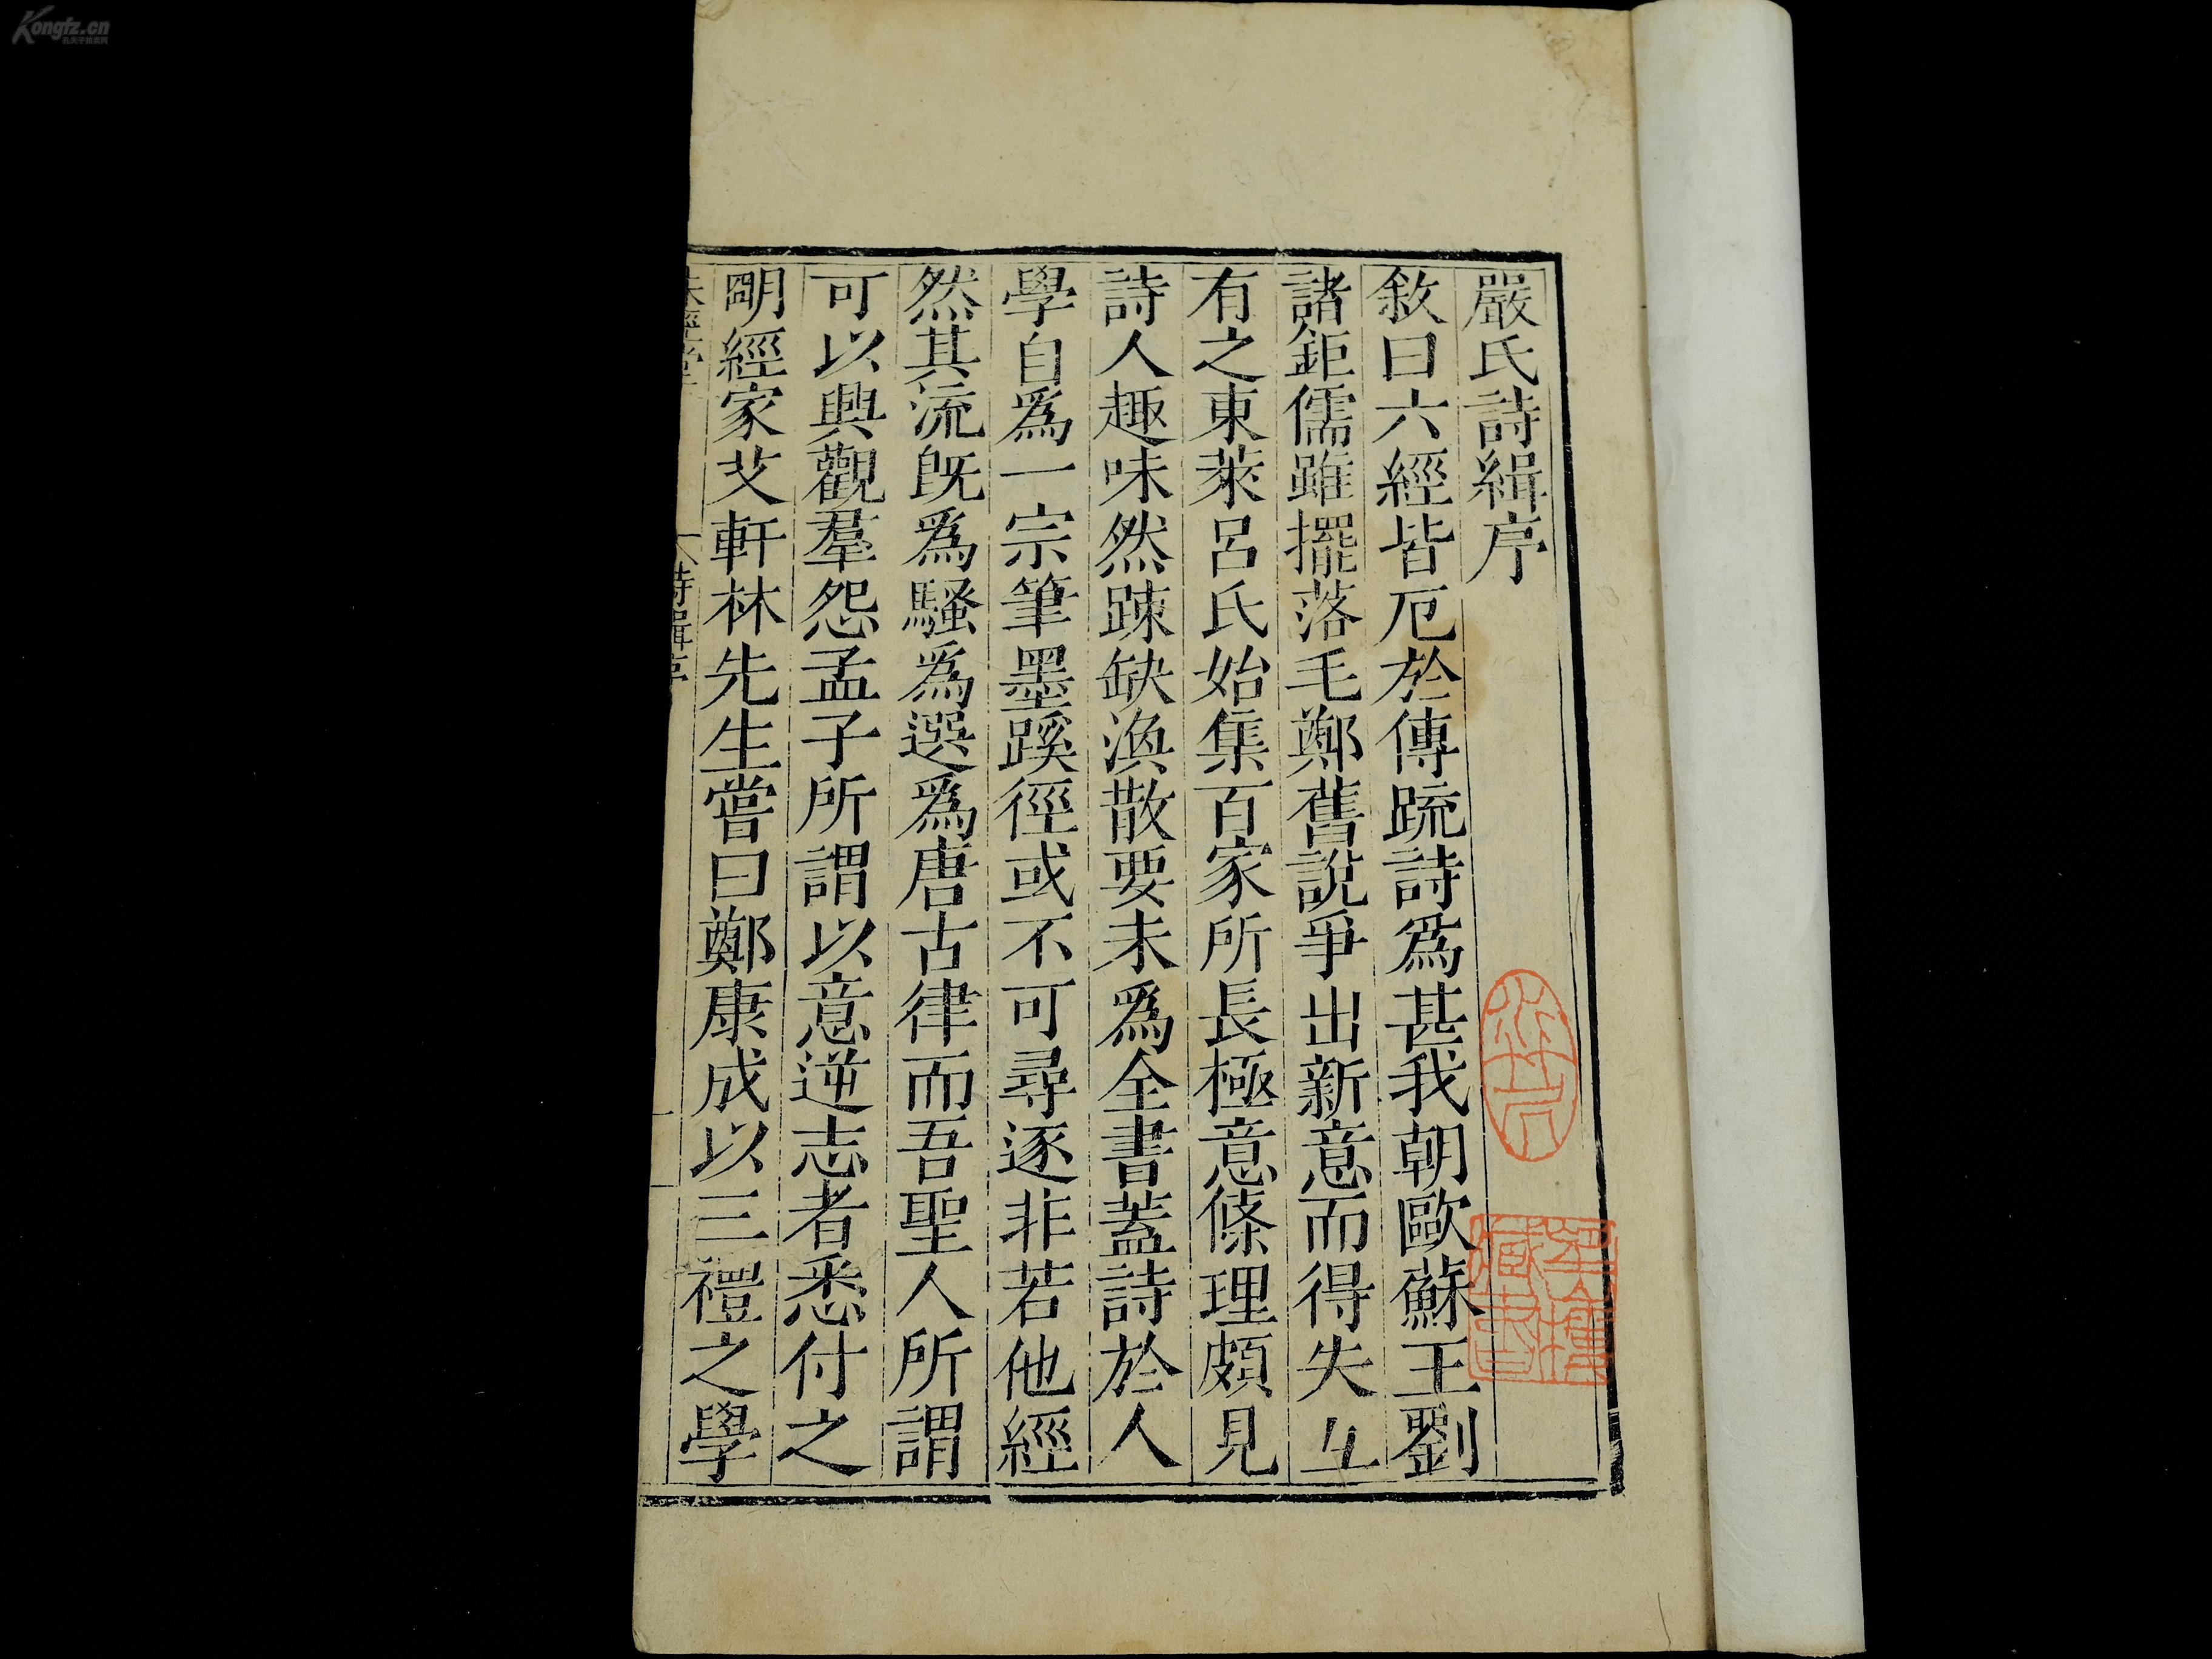 嚴氏詩緝序
敘曰六經皆厄於傳䟽詩爲甚我朝歐蘇王劉
諸鉅儒雖擺落毛鄭舊說爭出新意而得失互
有之東萊呂氏始集百家所長極意條理頗見
詩人趣味然踈缺渙散要未爲全書蓋詩於人
學自爲一宗筆墨蹊徑或不可尋逐非若他經
然其流旣爲騷爲選爲唐古律而吾聖人所謂
可以興觀羣怨孟子所謂以意逆志者悉付之
朙經家艾軒林先生嘗曰鄭康成以三禮之學
詩緝序
藏書
Kongfz.cn
孔夫子旧书网